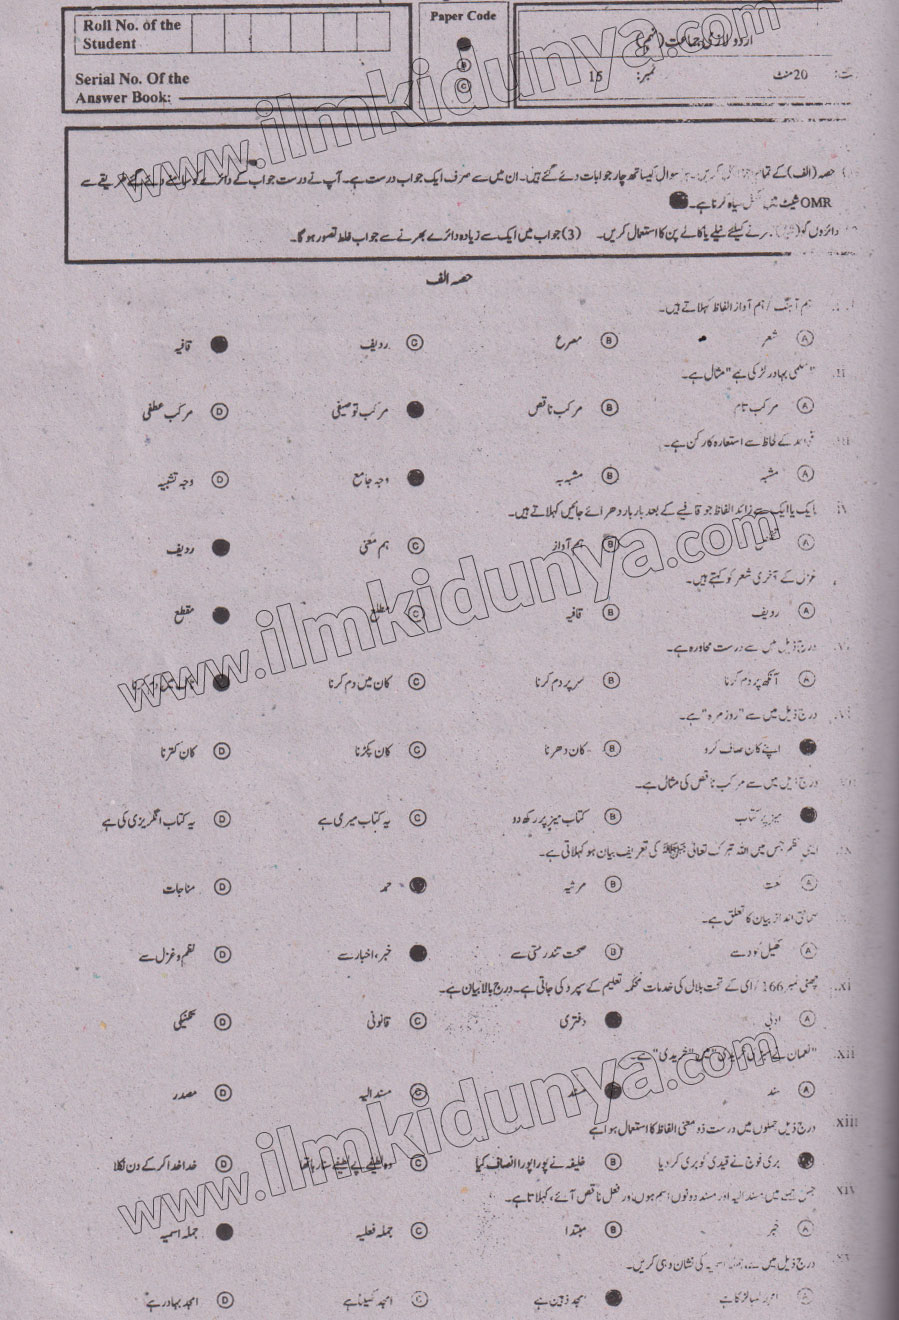 Roll No. of the
Student
Serial No. Of the
Answer Book:
Paper Code
B
C
اردو لازمی جماعت
20 منٹ نمبر: 15
حصہ (الف) کے سوال کیساتھ چار جوابات دئے گئے ہیں۔ ان میں سے صرف ایک جواب درست ہے۔ آپ نے درست جواب کے دائرے کو سامنے دئے گئے طریقے سے
OMR شیٹ میں مکمل سیاہ کرنا ہے۔
دائروں کو کرنے کیلئے نیلے یا کالے پن کا استعمال کریں۔ (3) جواب میں ایک سے زیادہ دائرے بھرنے سے جواب غلط تصور ہوگا۔
حصہ الف
ہم آہنگ / ہم آواز الفاظ کہلاتے ہیں۔
A شعر B مصرع C ردیف قافیہ
ii. بہادر لڑکی ہے" مثال ہے۔
A مرکب تام B مرکب ناقص مرکب توصیفی D مرکب عطفی
iii کے لحاظ سے استعارہ کا رکن ہے۔
A مشبہ B مشبہ بہ وجہ جامع D وجہ تشبیہ
iv ایک یا ایک سے زائد الفاظ جو قافیے کے بعد بار بار دھرائے جائیں کہلاتے ہیں۔
A B ہم آواز C ہم معنی ردیف
غزل کے آخری شعر کو کہتے ہیں۔
A ردیف B قافیہ C مطلع مقطع
درج ذیل میں سے درست محاورہ ہے۔
A آنکھ پر دم کرنا B سر پر دم کرنا C کان میں دم کرنا
درج ذیل میں سے "روزمرہ" ہے۔
اپنے کان صاف کرو B کان دھرنا C کان پکڑنا D کان کترنا
درج ذیل میں سے مرکب ناقص کی مثال ہے۔
میز پر کتاب B کتاب میز پر رکھ دو C یہ کتاب میری ہے D یہ کتاب انگریزی کی ہے
ایسی نظم جس میں اللہ تبارک تعالیٰ کی تعریف بیان ہو کہلاتی ہے۔
A نعت B مرثیہ حمد D مناجات
صحافتی انداز بیان کا تعلق ہے۔
A کھیل کود سے B صحت تندرستی سے خبر، اخبار سے D نظم و غزل سے
xi. چھٹی نمبر 166 کے تحت بلال کی خدمات محکمہ تعلیم کے سپرد کی جاتی ہے۔ درج بالا بیان ہے۔
A ادبی دفتری C قانونی D تکنیکی
xii "نعمان نے میں "خریدی" ہے۔
A سند مسند C مسند الیہ D مصدر
xiii درج ذیل جملوں میں درست ذو معنی الفاظ کا استعمال ہوا ہے
بری فوج نے قیدی کو بری کر دیا B خلیفہ نے پورا پورا انصاف کیا C وہ لطیفے پے لطیفے سنا رہا تھا D خدا خدا کر کے دن نکلا
xiv جس جملے میں مسند الیہ اور مسند دونوں اسم ہوں اور فعل ناقص آئے، کہلاتا ہے۔
A خبر B مبتدا C جملہ فعلیہ جملہ اسمیہ
درج ذیل میں سے جملہ اسمیہ کی نشان دہی کریں۔
A امجد ذہین ہے C امجد کھیلتا ہے D امجد بہادر ہے
www.ilmkidunya.com
www.ilmkidunya.com
www.ilmkidunya.com